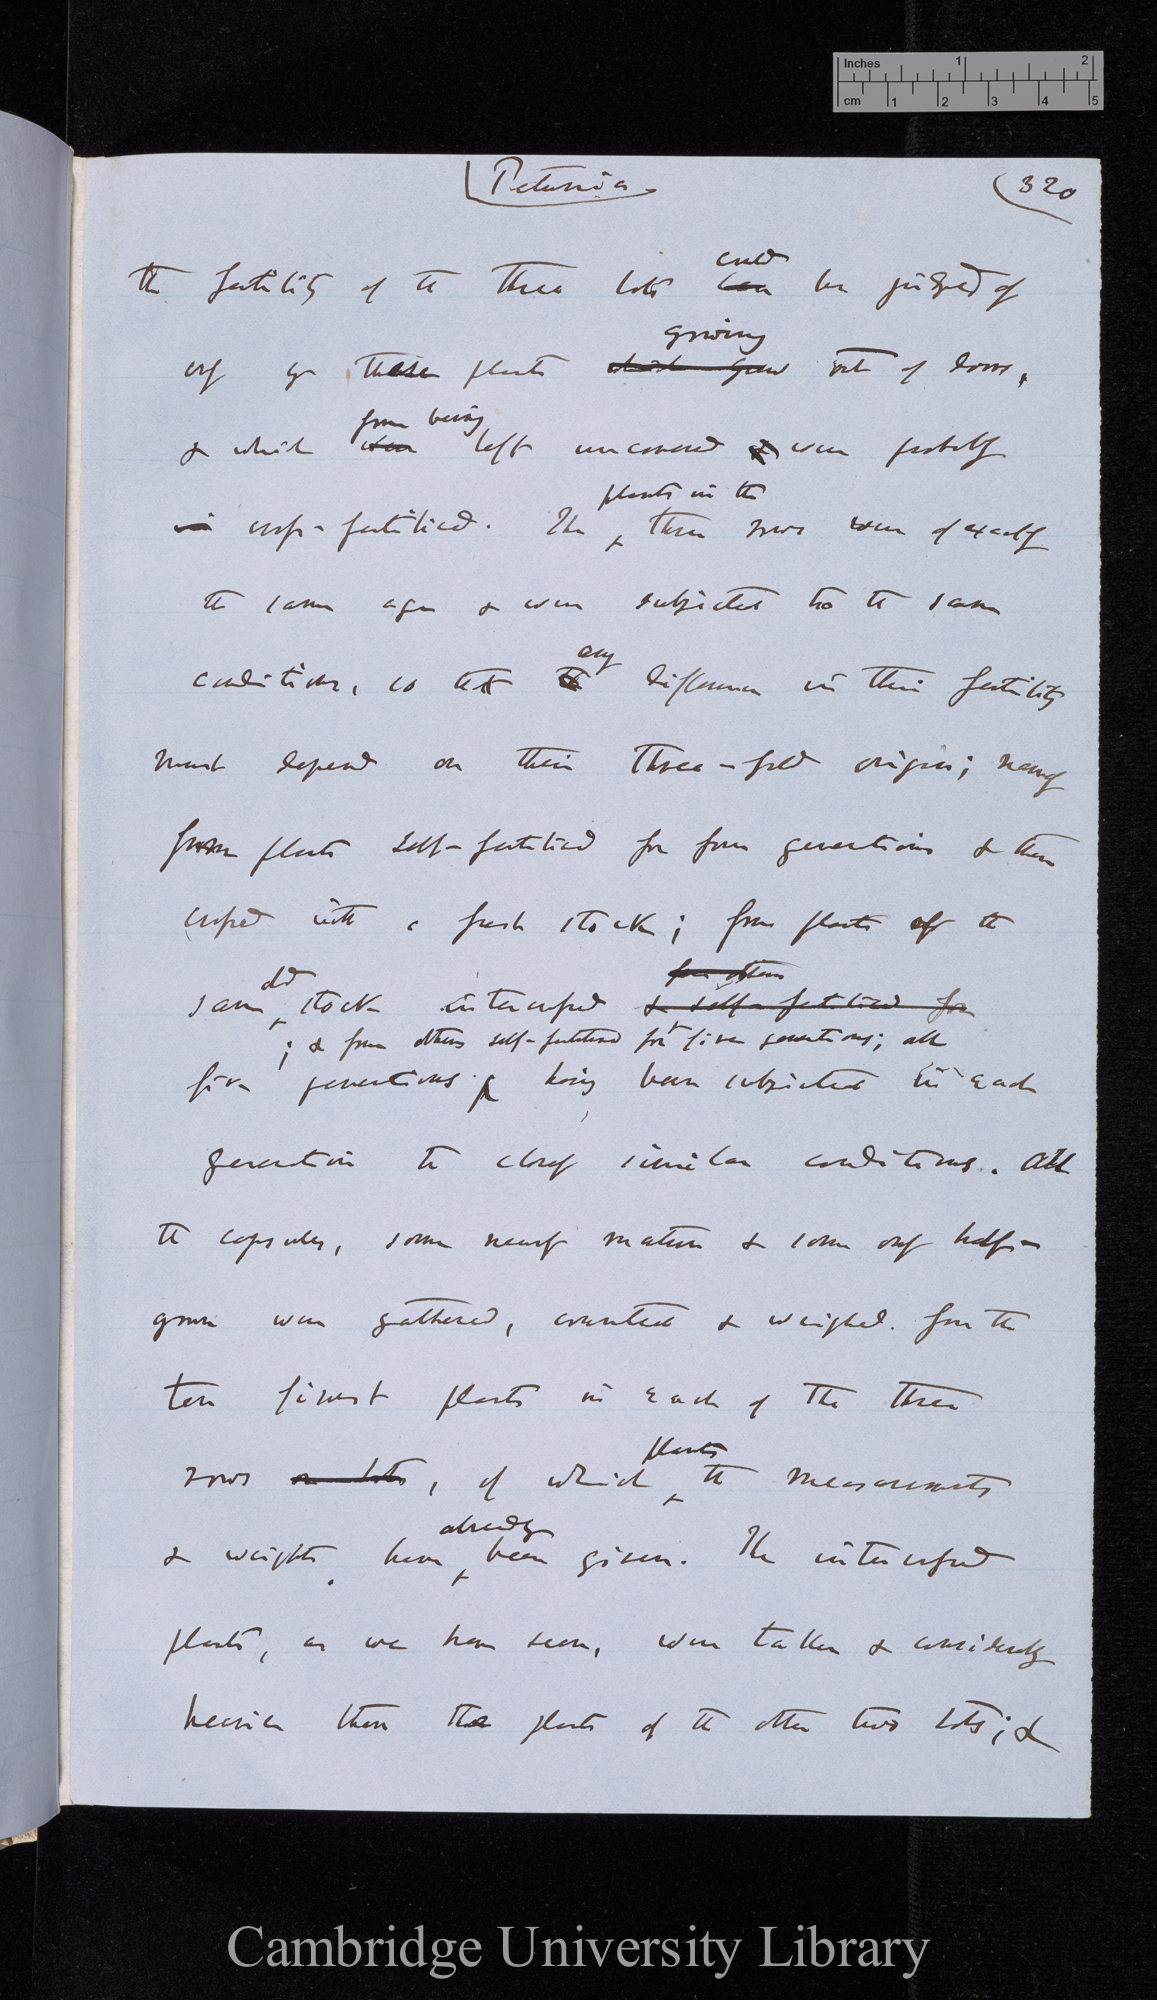 Inches 1 2
cm 1 2 3 4 5
Petunia
320
could
the fertility of the three lots can be judged of
growing
only by these plants which grew out of doors,
from being
& which were left uncovered & were probably
plants in the
in cross-fertilised. The three rows were of exactly
the same age & were subjected to the same
any
conditions, so that the difference in their fertility
must depend on their three-fold origin; namely
from plants self-fertilised for four generations & then
crossed with a fresh stock; from plants of the
old from others
same stock intercrossed & self-fertilised for
; & from others self-fertilised for five generations; all
five generations having been subjected in each
generation to closely similar conditions. All
the capsules, some nearly mature & some only half-
grown were gathered, counted & weighed from the
ten finest plants in each of the three
plants
rows or lots, of which the measurements
already
& weights have been given. The intercrossed
plants, as we have seen, were taller & considerably
heavier than the plants of the other two lots; &
Cambridge University Library